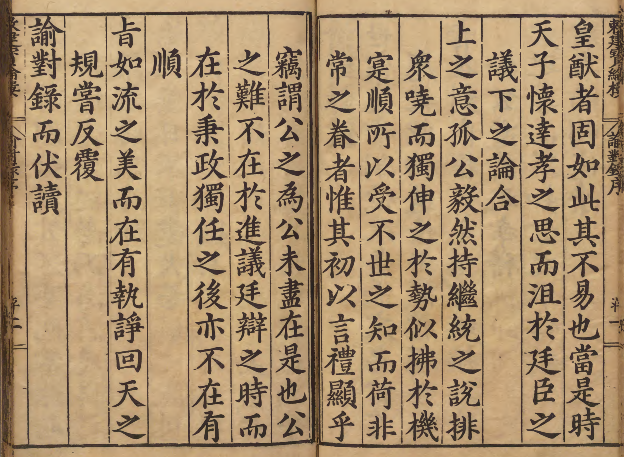 皇猷者固如此其不易也當是時
天子懷達孝之思而沮於廷臣之
議下之論合
上之意孤公毅然持繼統之說排
衆嘵而獨伸之於勢似拂於機
寔順所以受不世之知而荷非
常之眷者惟其初以言禮顯乎
竊謂公之為公未盡在是也公
之難不在於進議廷辯之時而
在於秉政獨任之後亦不在有
順
旨如流之美而在有執諍回天之
規嘗反覆
諭對錄而伏讀